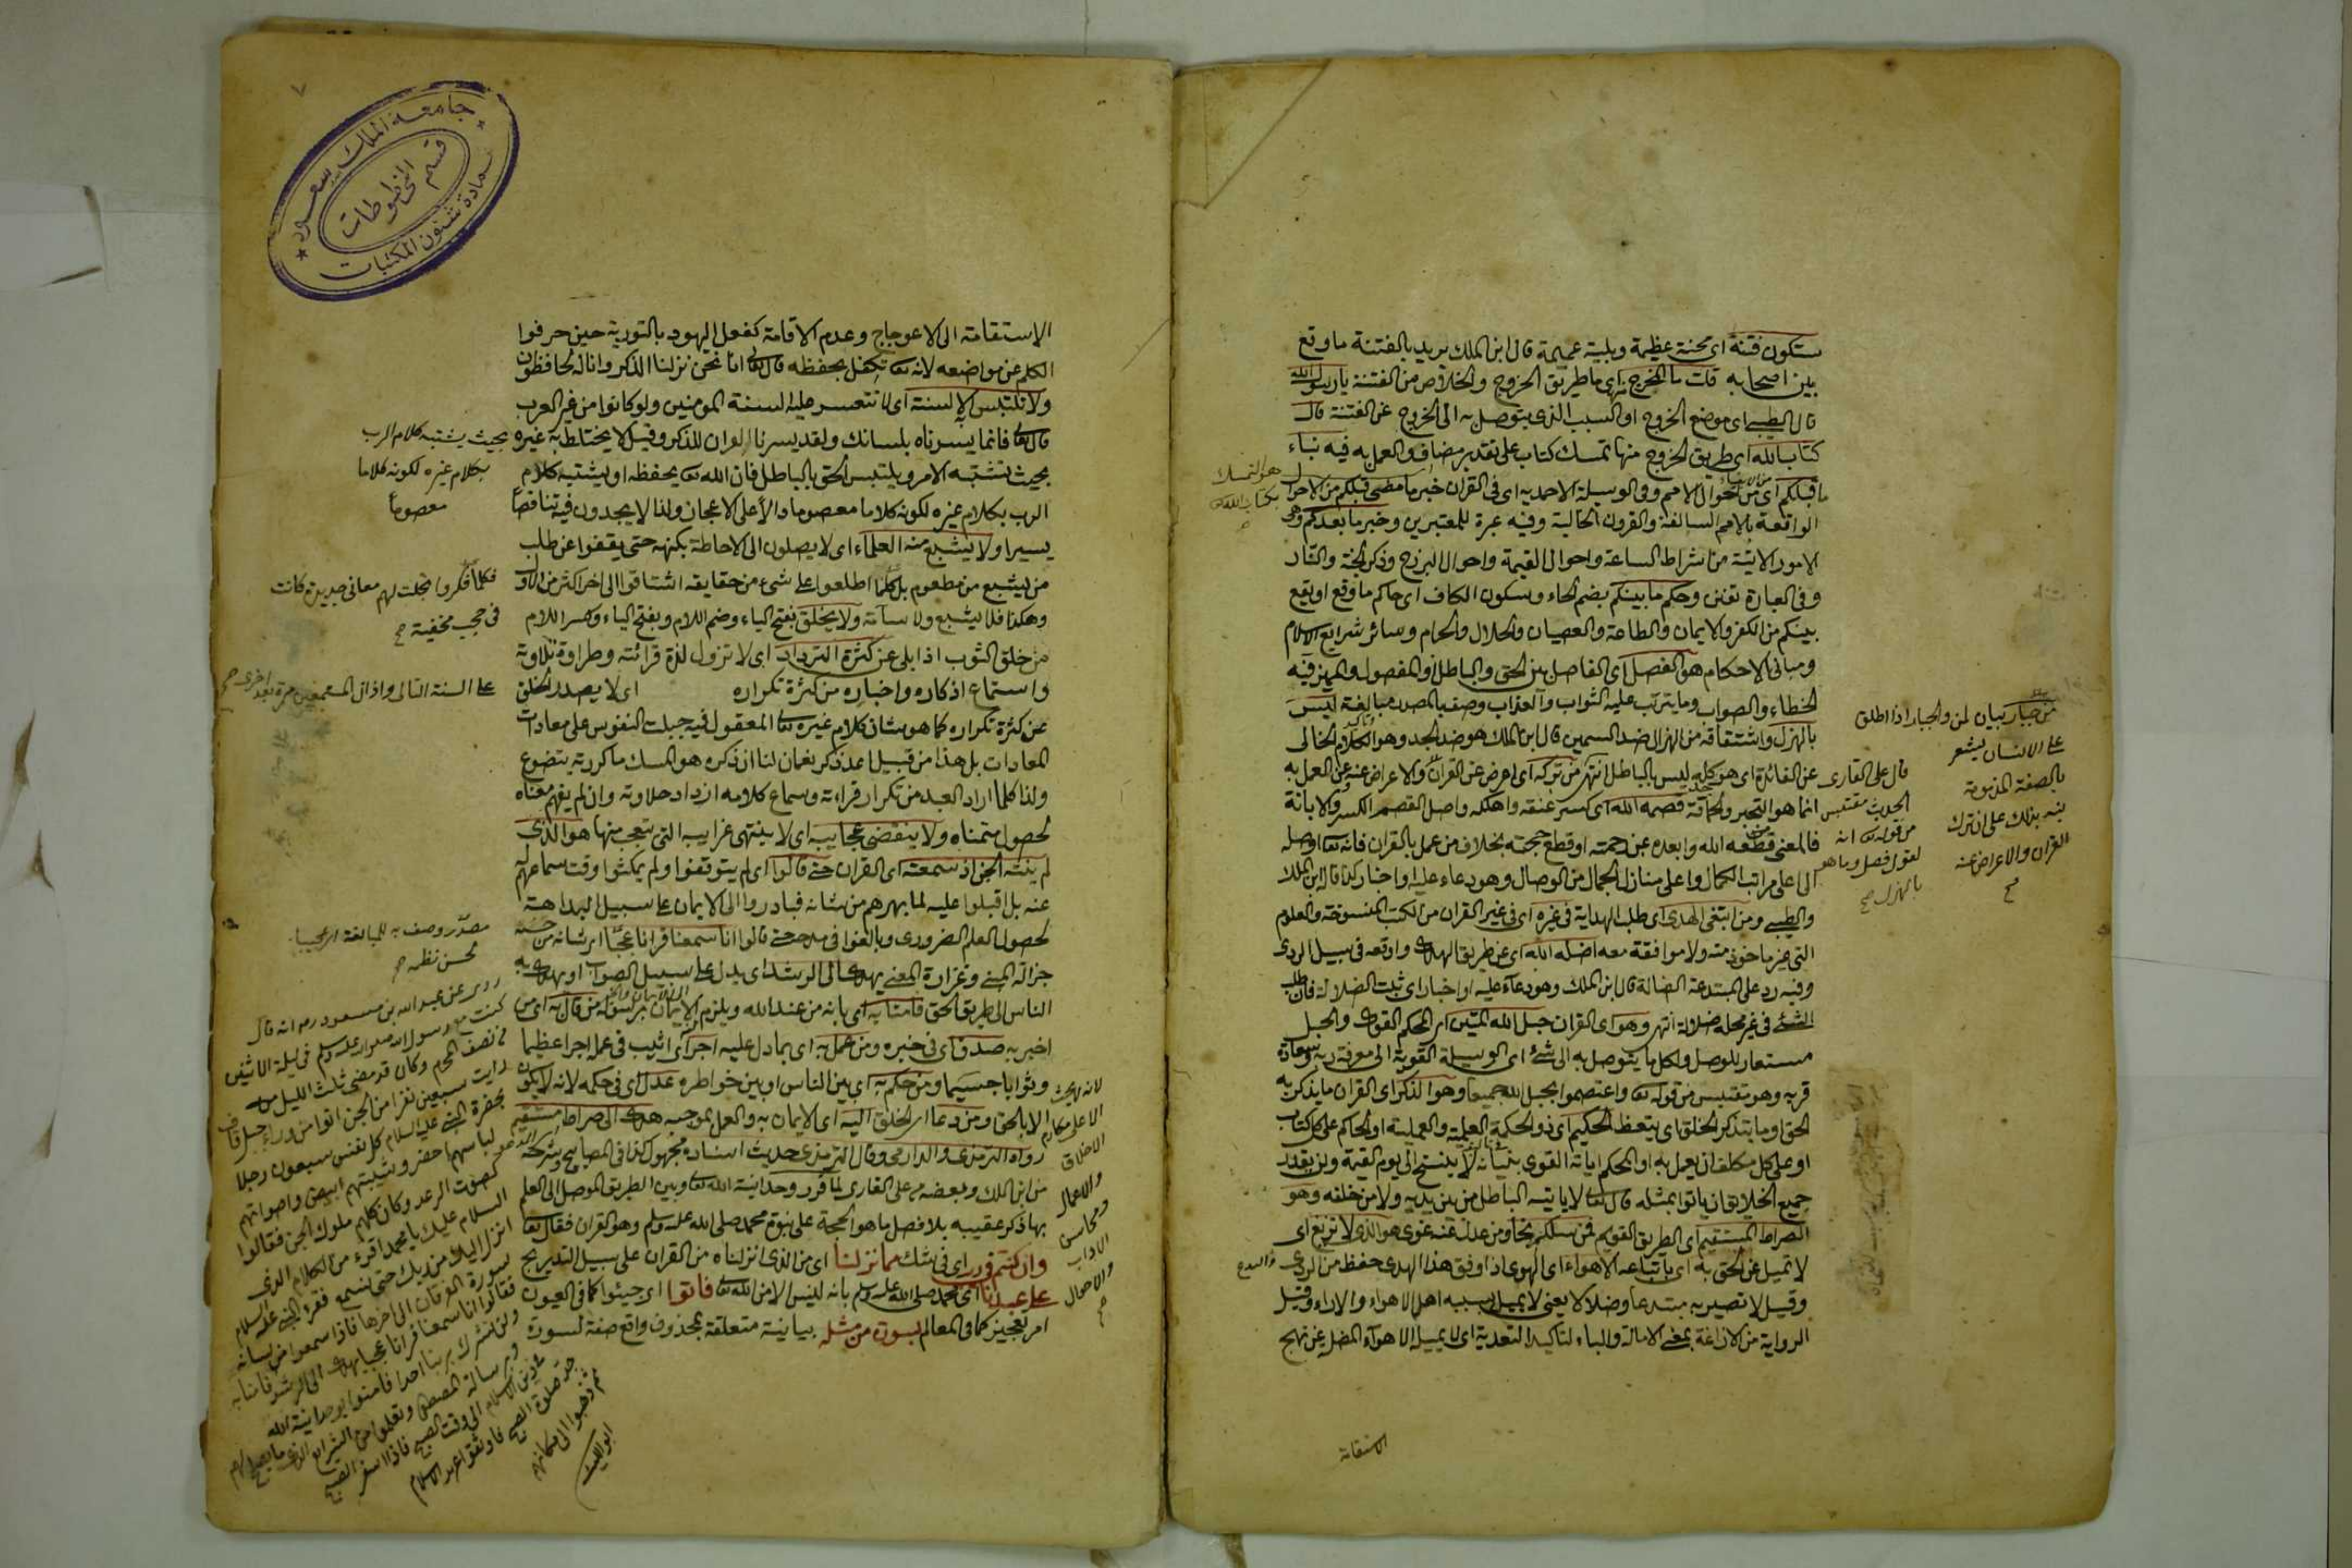 ستكون فتنة اى محنة عظيمة وبلية عميمة قال ابن الملك يريد بالفتنة ما وقع
بين اصحابه قلت ما المخرج منها اى ما طريق الخروج والخلاص من الفتنة يا رسول الله
قال الطيبى اى موضع الخروج او السبب الذى يتوصل به الى الخروج عن الفتنة قال
كتاب الله اى طريق الخروج منها تمسك كتاب على تقدير مضاف والعمل به فيه نباء
ما قبلكم اى من احوال الامم وفى الوسيلة الاحمدية اى فى القران خبر ما مضى قبلكم من الاحوال
الواقعة بالامم السالفة والقرون الخالية وفيه عبرة للمعتبرين وخبر ما بعدكم وهو
الامور الاتية من اشراط الساعة واحوال القيمة واحوال البرزخ وذكر الجنة والنار
وفى العبارة تفنن وحكم ما بينكم بضم الحاء وسكون الكاف اى حاكم ما وقع او يقع
بينكم من الكفر والايمان والطاعة والعصيان والحلال والحرام وسائر شرايع الاسلام
ومبانى الاحكام هو الفصل اى الفاصل بين الحق والباطل او المفصول والمميز فيه
الخطاء والصواب وما يترتب عليه الثواب والعذاب وصف بالمصدر مبالغة ليس
بالهزل واشتقاقه من الهزال ضد السمين قال ابن الملك هو ضد الجد وهو الكلام الخالى
عن الفائدة اى هو كله ليس بالباطل انتهى من تركه اى اعرض عن القران والاعراض عنه وعن العمل به
انما هو التجبر والحماقة قصمه الله اى كسر عنقه واهلكه واصل القصم الكسر والابانة
فالمعنى قطعه الله وابعده عن رحمته او قطع حجته بخلاف من عمل بالقران فانه تعا اوصله
الى اعلى مراتب الكمال واعلى منازل الجمال من الوصال وهو دعاء عليه او اخبار كذا قال ابن الملك
والطيبى ومن ابتغى الهدى اى طلب الهداية فى غيره اى فى غير القران من الكتب المنسوخة والعلوم
التى غير ماخوذ منه ولا موافقة معه اضله الله اى عن طريق الهدى واوقعه فى سبيل الردى
وفيه رد على المبتدعة الضالة قال ابن الملك وهو دعاء عليه او اخبار اى ثبت الضلالة فان طلب
الشئ فى غير محله ضلالة انتهى وهو اى القران حبل الله المتين اى المحكم القوى والحبل
مستعار للوصل ولكل ما يتوصل به الى شئ اى الوسيلة القوية الى معرفة ربه وسعادة
قربه وهو مقتبس من قوله تعا واعتصموا بحبل الله جميعا وهو الذكر اى القران ما يذكر به
الحق او ما يتذكر الخلق اى يتعظ الحكيم اى ذو الحكمة العلمية والعملية او الحاكم على كل كتاب
او على كل مكلف ان يعمل به او المحكم اياته القوى بنيانه لا ينسخ الى يوم القيمة ولن يقدر
جميع الخلايق ان ياتوا بمثله قال تعا لا ياتيه الباطل من بين يديه ولا من خلفه وهو
الصراط المستقيم اى الطريق القويم فمن سلكه نجا ومن عدل عنه غوى هو الذى لا تزيغ اى
لا تميل عن الحق به اى باتباعه الاهواء اى الهوى اذا وفق هذا الهدى حفظ من الردى
وقيل لا تصير به مبتدعا وضالا يعنى لا يميل بسببه اهل الاهواء والاراء وقيل
الرواية من الازاغة بمعنى الامالة والباء لتاكيد التعدية اى لا يميله الاهواء المضلة عن نهج
هو التمسك
بكتاب الله
والبدع
من جبار بيان لمن والجبار اذا اطلق
على الانسان يشعر
بالصفة المذمومة
نبه بذلك على ان ترك
القران والاعراض عنه
قال على القارى
الحديث مقتبس
من قوله تعا انه
لقول فصل وما هو
بالهزل
الاستقامة
الاستقامة الى الاعوجاج وعدم الاقامة كفعل اليهود بالتورية حين حرفوا
الكلم عن مواضعه لانه تعا تكفل بحفظه قال تعا انا نحن نزلنا الذكر وانا له لحافظون
ولا تلتبس به الالسنة اى لا تتعسر عليه السنة المومنين ولو كانوا من غير العرب
قال تعا فانما يسرناه بلسانك ولقد يسرنا القران للذكر وقيل لا يختلط به غيره
بحيث تشتبه الامر ويلتبس الحق بالباطل فان الله تعا يحفظه او يشتبه كلام
الرب بكلام غيره لكونه كلاما معصوما دالا على الاعجاز ولذا لا يجدون فيه تناقضا
يسيرا ولا يشبع منه العلماء اى لا يصلون الى الاحاطة بكنهه حتى يقفوا عن طلب
من يشبع من مطعوم بل كلما اطلعوا على شئ من حقايقه اشتاقوا الى اخر اكثر من الاول
وهكذا فلا يشبع ولا سآمة ولا يخلق بفتح الياء وضم اللام وبفتح الياء وكسر اللام
من خلق الثوب اذا بلى عن كثرة الترداد اى لا تزول لذة قرائته وطراوة تلاوته
واستماع اذكاره واخباره من كثرة تكراره اى لا يصدر الخلق
عن كثرة تكراره كما هو شان كلام غيره تعا المعقول فيه جبلت النفوس على معادات
المعادات بل هذا من قبيل اعد ذكر نعمان لنا ان ذكره هو المسك ما كررته يتضوع
ولذا كلما اراد العبد من تكرار قراءته وسماع كلامه ازداد حلاوته وان لم يفهم معناه
لحصول متمناه ولا ينقضى عجايبه اى لا ينتهى غرايبه التى يتعجب منها هو الذى
لم ينته الجن اذ سمعته اى القران حتى قالوا اى لم يتوقفوا ولم يمكثوا وقت سماعهم له
عنه بل اقبلوا عليه لما بهرهم من شانه فبادروا الى الايمان على سبيل البداهة
لحصول العلم الضرورى وبالغوا فى مدحه حتى قالوا انا سمعنا قرانا عجبا اى شانه من
جزالة المبنى وغزارة المعنى يهدى الى الرشد اى يدل على سبيل الصواب او يهدى به
الناس الى طريق الحق فامنا به اى بانه من عند الله ويلزم الايمان برسوله من قال به اى من
اخبر به صدق اى فى خبره ومن عمل به اى بما دل عليه اجر اى اثيب فى عمله اجرا عظيما
وثوابا جسيما ومن حكم به اى بين الناس او بين خواطره عدل اى فى حكمه لانه لا يكون
الا بالحق ومن دعا اى الخلق اليه اى الايمان به والعمل بموجبه هدى الى صراط مستقيم
رواه الترمذى والدارمى وقال الترمذى حديث اسناده مجهول كذا فى المصابيح وشرحه
من ابن الملك وبعضه من على القارى لما قرر وحدانية الله تعا وبين الطريق الموصل الى العلم
بها ذكر عقيبه بلا فصل ما هو الحجة على نبوة محمد صلى الله عليه وسلم وهو القران فقال تعا
وان كنتم فى ريب اى فى شك مما نزلنا اى من الذى انزلناه من القران على سبيل التدريج
على عبدنا اى محمد صلى الله عليه وسلم بانه ليس الا من الله تعا فاتوا اى جيئوا كما فى العيون
امر تعجيز كما فى المعالم بسورة من مثله بيانية متعلقة بمحذوف واقع صفة لسورة
بحيث يشتبه كلام الرب
بكلام غيره لكونه كلاما
معصوما
فكلما فكروا تجلت لهم معانى جديدة كانت
فى حجب مخفية
على السنة التالى واذان المستمعين مرة بعد اخرى
مصدر وصف به للمبالغة اى عجيبا
لحسن نظمه
روى عن عبد الله بن مسعود رضه انه قال
كنت مع رسول الله صلى الله عليه وسلم فى ليلة الاثنين
رايت سبعين نفرا من الجن اتوا من وراء جبل قاف
بحضرة النبى عليه السلام كل نفس سبعون رجلا
كصوت الرعد وكان كلهم ملوك الجن فقالوا
السلام عليك يا محمد اقرء من الكلام الذى
انزل اليك من ربك حتى نسمع فقرء النبى عليه السلام
فقالوا انا سمعنا قرانا عجبا يهدى الى الرشد فامنا به
ولن نشرك بربنا احدا فامنوا بوحدانية الله
ثم ذهبوا الى مكانهم
ابو الليث
لانه لا يحث
الا على مكارم
الاخلاق
والاعمال
ومحاسن
الاداب
والاحوال
جامعة الملك سعود
قسم المخطوطات
عمادة شئون المكتبات
٧